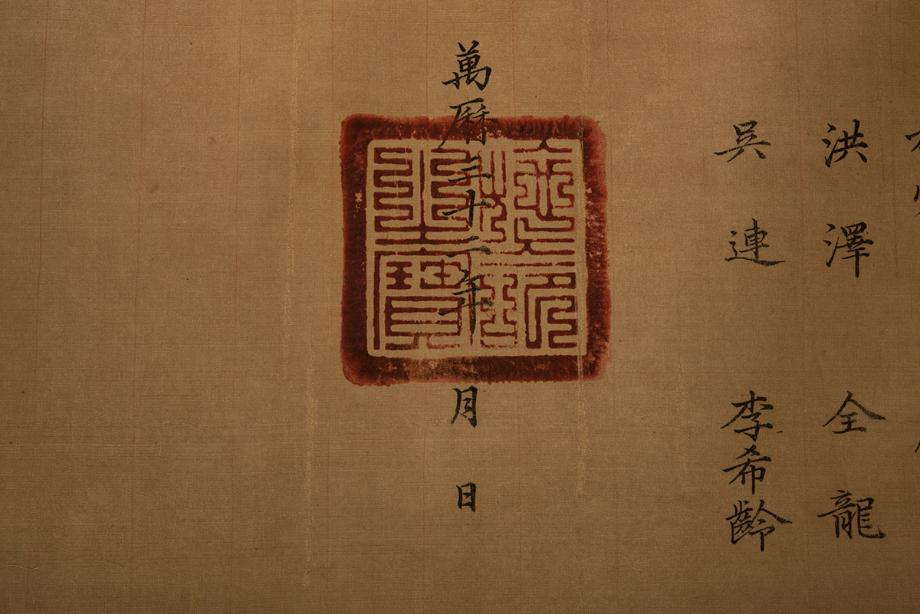 洪澤 全龍
吳連 李希齡
萬曆三十二年 月 日